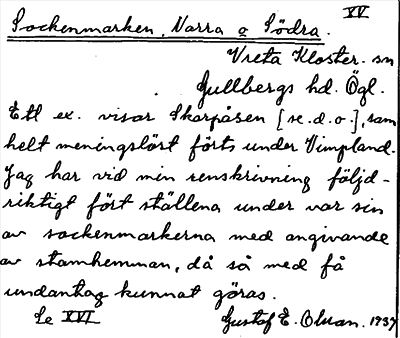 XV
Sockenmarken, Norra o Södra.
Vreta Kloster. sn
Gullbergs hd. Ögl.
Ett ex. visar Skorpåsen [se.d.o.], som
helt meningslöst förts under Vimpland.
Jag har vid min renskrivning följd-
riktigt fört ställena under var sin
av sockenmarkerna med angivande
av stamhemman, då så med få
undantag kunnat göras.
Se XVI Gustaf E. 1937